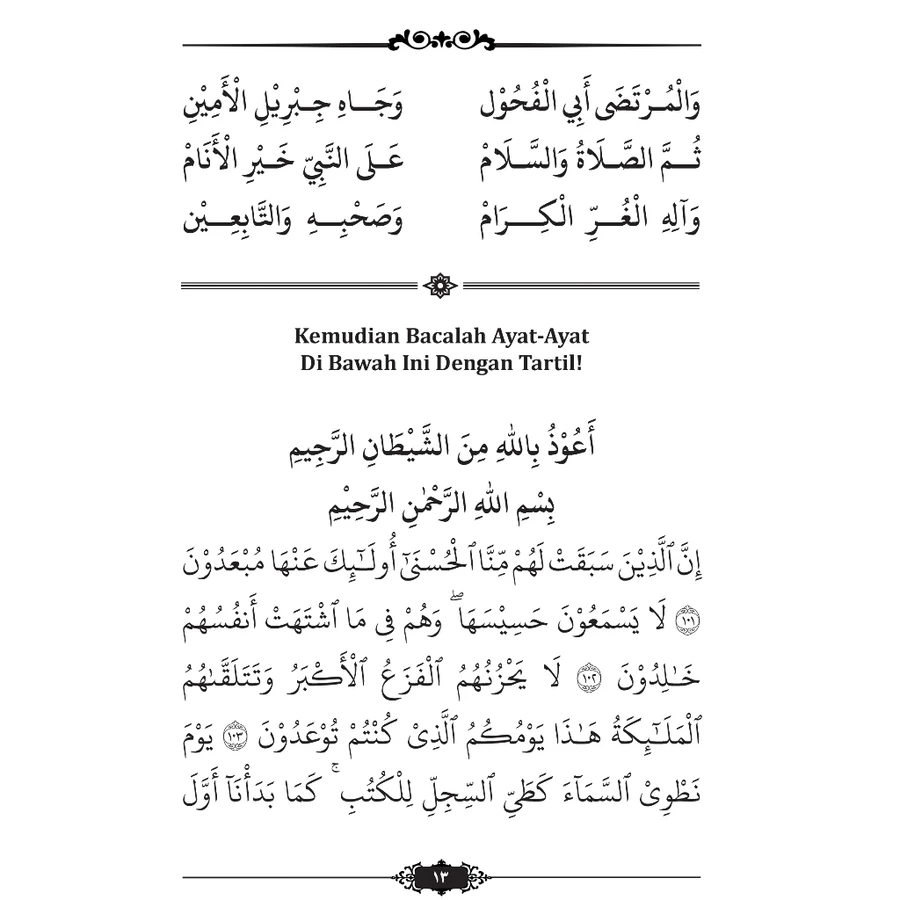 وَالْمُـرْتَضَى أَبِي الْفُحُوْل وَجَـــاهِ جِـبْرِيْلِ الْأَمِيْنِ
ثُــمَّ الصَّـلَاةُ وَالسَّـلَامْ عَـلَى النَّبِيِّ خَـيْرِ الْأَنَامْ
وَآلِهِ الْغُــرِّ الْكِــرَامْ وَصَحْبِــهِ وَالتَّابِعِــيْن
Kemudian Bacalah Ayat-Ayat
Di Bawah Ini Dengan Tartil!
أَعُوْذُ بِاللهِ مِنَ الشَّيْطَانِ الرَّجِيمِ
بِسْمِ اللهِ الرَّحْمٰنِ الرَّحِيْمِ
إِنَّ ٱلَّذِيْنَ سَبَقَتْ لَهُمْ مِّنَّا ٱلْحُسْنَىٰٓ أُولَـٰٓئِكَ عَنْهَا مُبْعَدُوْنَ
۝١٠١ لَا يَسْمَعُوْنَ حَسِيْسَهَا ۖ وَهُمْ فِى مَا ٱشْتَهَتْ أَنْفُسُهُمْ
خَـٰلِدُوْنَ ۝١٠٢ لَا يَحْزُنُهُمُ ٱلْفَزَعُ ٱلْأَكْبَرُ وَتَتَلَقَّىٰهُمُ
ٱلْمَلَـٰٓئِكَةُ هَـٰذَا يَوْمُكُمُ ٱلَّذِىْ كُنْتُمْ تُوْعَدُوْنَ ۝١٠٣ يَوْمَ
نَطْوِىْ ٱلسَّمَآءَ كَطَىِّ ٱلسِّجِلِّ لِلْكُتُبِ ۚ كَمَا بَدَأْنَآ أَوَّلَ
١٣